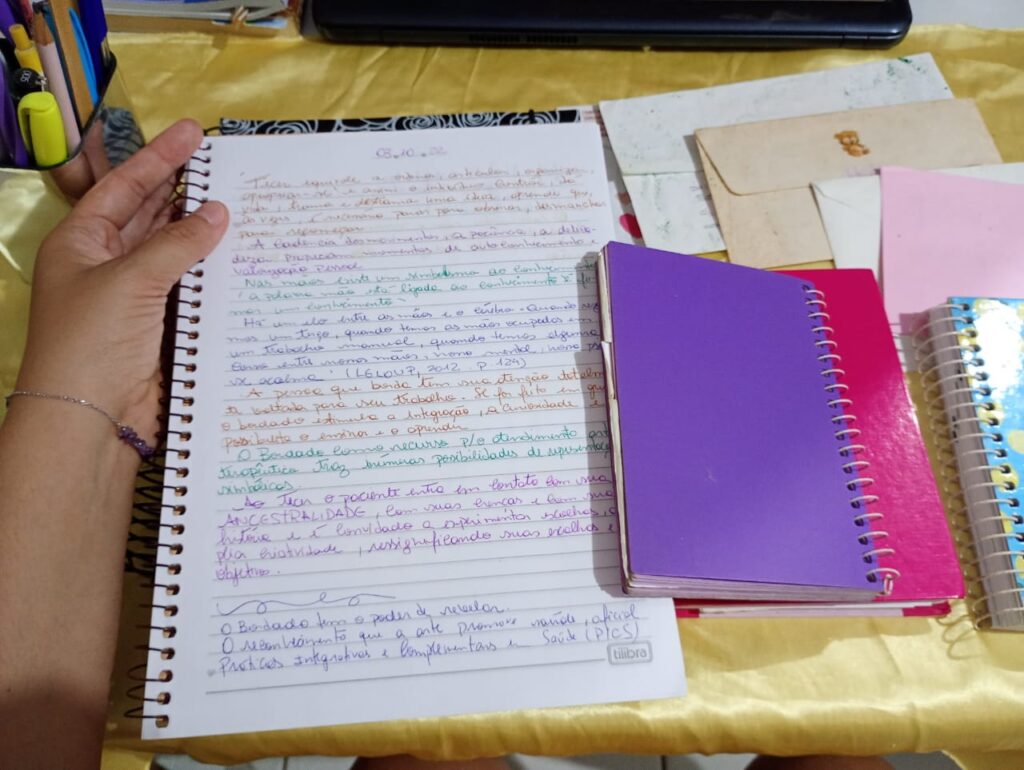 03.10.22
"Tecer equivale a ordenar, articular, organizar,
e assim o intelecto
vida, trama e destrama uma teia, aprende que,
às vezes é necessário parar para observar, desmanchar
para recomeçar.
A Cadência dos movimentos, a paciência, a delica-
deza propiciam momentos de autoconhecimento e
Valorização Pessoal
Nas mãos existe um simbolismo ao conhecimento
"a palavra mão está ligada ao conhecimento é
mos um conhecimento"
Há um elo entre as mãos e o cérebro. Quando
mos um terço, quando temos as mãos ocupadas em
um trabalho manual, quando temos alguma
coisa entre nossas mãos, nosso mental, nosso
se acalma" (LELOUP, 2012. P. 124)
A pessoa que borda tem sua atenção
voltada para seu trabalho. Se for feito em
o bordado estimula a integração, a curiosidade e
possibilita o ensinar e o aprender
O Bordado como recurso p/o atendimento
terapêutico traz inúmeras possibilidades de
simbólicas.
Ao Tecer o paciente entra em contato com sua
ANCESTRALIDADE, com suas crenças e com sua
história e é convidado a experimentar escolhas,
criatividade, ressignificando suas escolhas e
objetivo.
O Bordado tem o poder de revelar.
O reconhecimento que a arte promove saúde, oficial
Práticas Integrativas e Complementares em Saúde (PICS)
tilibra